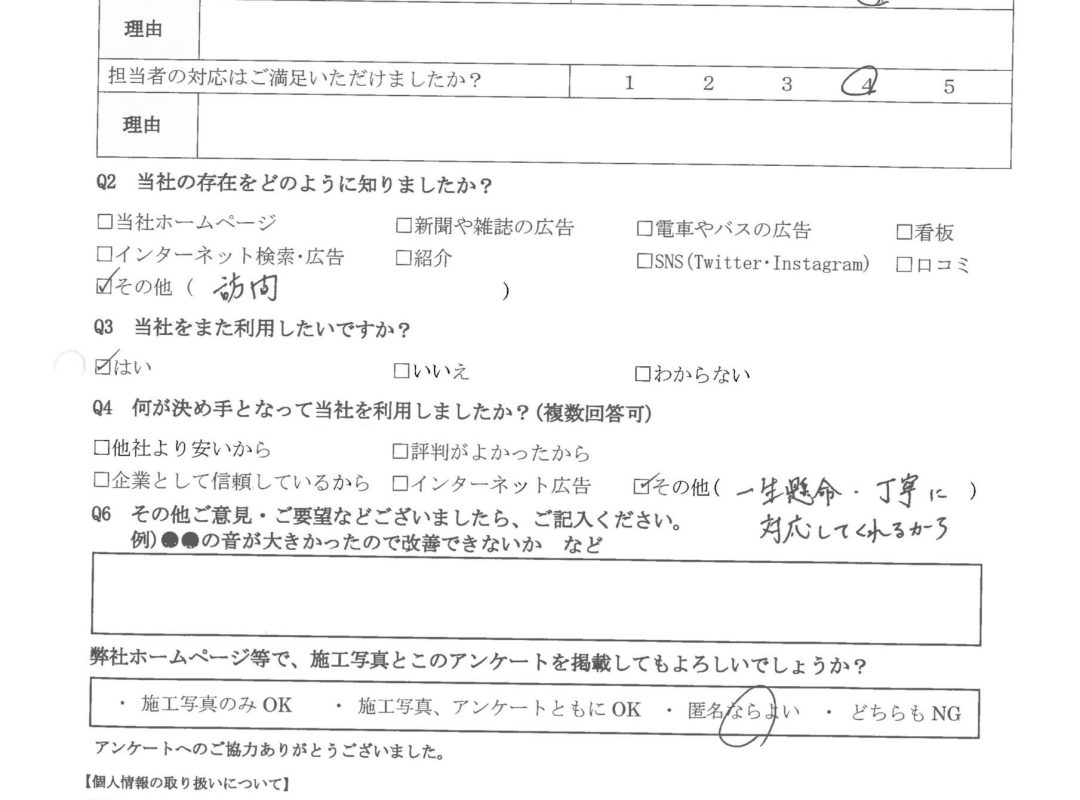 理由
担当者の対応はご満足いただけましたか？ 1 2 3 4 5
理由
Q2 当社の存在をどのように知りましたか？
□当社ホームページ □新聞や雑誌の広告 □電車やバスの広告 □看板
□インターネット検索・広告 □紹介 □SNS(Twitter・Instagram) □口コミ
☑その他（ 訪問 ）
Q3 当社をまた利用したいですか？
☑はい □いいえ □わからない
Q4 何が決め手となって当社を利用しましたか？(複数回答可)
□他社より安いから □評判がよかったから
□企業として信頼しているから □インターネット広告 ☑その他( 一生懸命・丁寧に )
対応してくれるから
Q6 その他ご意見・ご要望などございましたら、ご記入ください。
例)●●の音が大きかったので改善できないか など
弊社ホームページ等で、施工写真とこのアンケートを掲載してもよろしいでしょうか？
・ 施工写真のみ OK ・ 施工写真、アンケートともに OK ・ 匿名ならよい ・ どちらも NG
アンケートへのご協力ありがとうございました。
【個人情報の取り扱いについて】